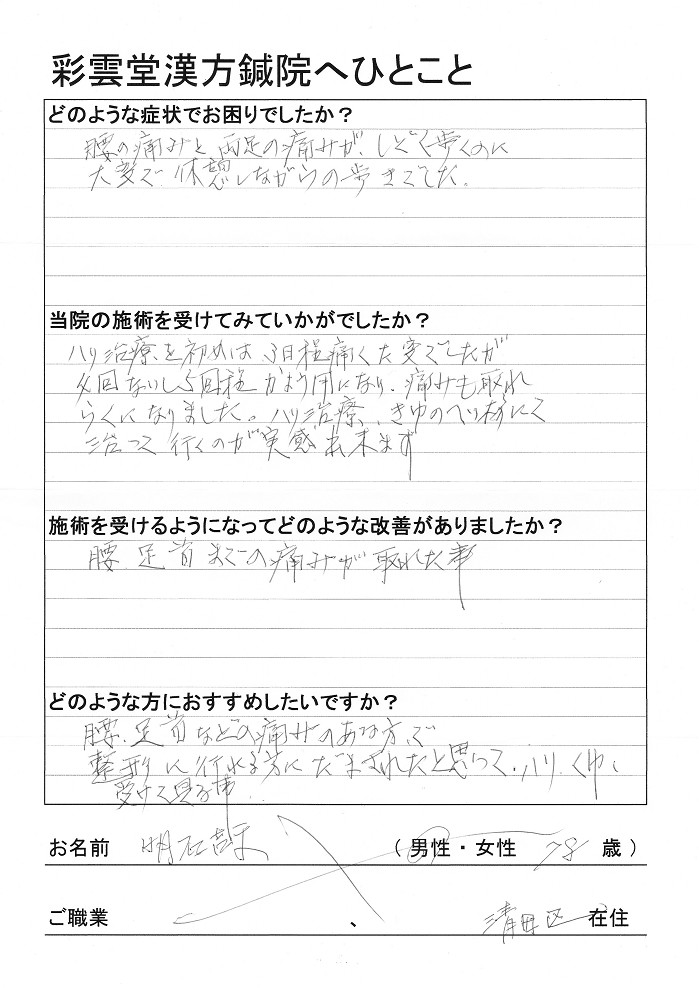 彩雲堂漢方鍼院へひとこと
どのような症状でお困りでしたか？
腰の痛みと両足の痛みが、しどく歩くのに
大変で休憩しながらの歩きでした。
当院の施術を受けてみていかがでしたか？
ハリ治療を初めは3日程痛く大変でしたが
4回ないし5回程かよう内になり、痛みも取れ
らくになりました。ハリ治療、きゆの
治って行くのが実感出来ます
施術を受けるようになってどのような改善がありましたか？
腰足首までの痛みが取れた事
どのような方におすすめしたいですか？
腰、足首などの痛みのある方で
整形に行れる方にだまされたと思って、ハリ、
受けて見る事
お名前 明石
（男性・女性 78 歳）
ご職業 、 清田区 在住